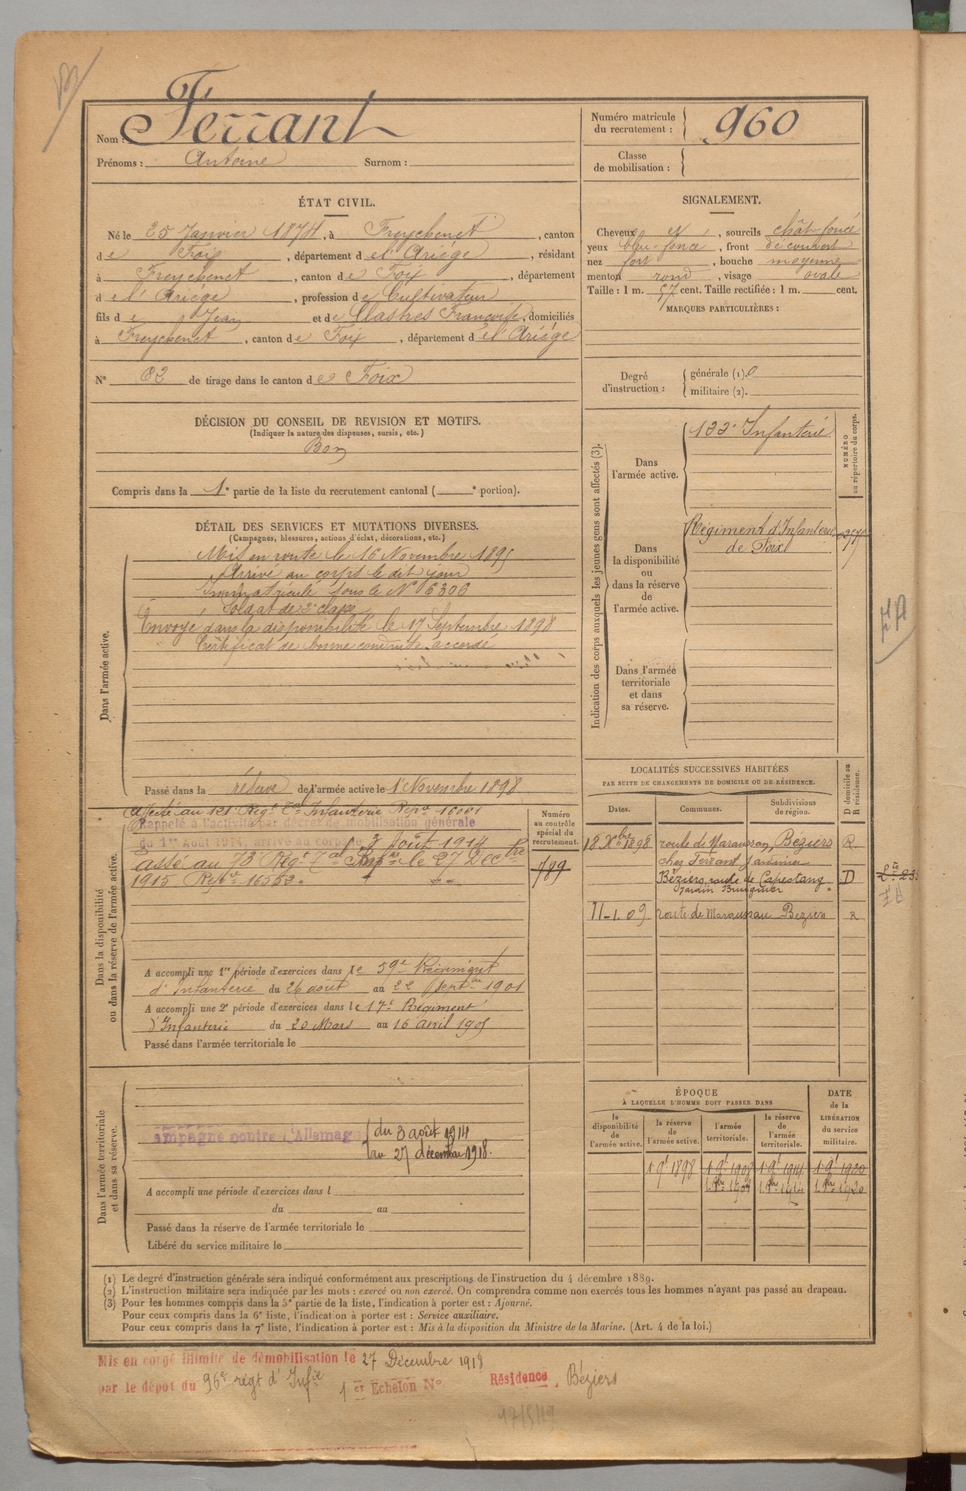 Nom : Ferrant
Prénoms : Antoine Surnom :
Numéro matricule du recrutement : 960
Classe de mobilisation :
ÉTAT CIVIL.
Né le 25 Janvier 1874, à Freychenet, canton
de Foix, département de l'Ariège, résidant
à Freychenet, canton de Foix, département
de l'Ariège, profession de Cultivateur
fils de Jean et de Clastres Françoise, domiciliés
à Freychenet, canton de Foix, département de l'Ariège
N° 82 de tirage dans le canton de Foix
SIGNALEMENT.
Cheveux d°, sourcils chât-foncé
yeux bleu-foncé, front découvert
nez fort, bouche moyenne
menton rond, visage ovale
Taille : 1 m. 57 cent. Taille rectifiée : 1 m. cent.
MARQUES PARTICULIÈRES :
Degré d'instruction : générale (1). 0
militaire (2).
DÉCISION DU CONSEIL DE REVISION ET MOTIFS.
(Indiquer la nature des dispenses, sursis, etc.)
Bon
Compris dans la 1e partie de la liste du recrutement cantonal ( e portion).
DÉTAIL DES SERVICES ET MUTATIONS DIVERSES.
(Campagnes, blessures, actions d'éclat, décorations, etc.)
Dans l'armée active.
Mis en route le 16 Novembre 1895
Arrivé au corps le dit jour
Immatriculé sous le N° 6306
Soldat de 2e classe
Envoyé dans la disponibilité le 17 Septembre 1898
Certificat de bonne conduite accordé
Passé dans la réserve de l'armée active le 1er Novembre 1898
Indication des corps auxquels les jeunes gens sont affectés (3).
NUMÉRO au répertoire du corps.
Dans l'armée active.
122e Infanterie
Dans la disponibilité ou dans la réserve de l'armée active.
Régiment d'Infanterie
de Foix
Dans l'armée territoriale et dans sa réserve.
Dans la disponibilité ou dans la réserve de l'armée active.
Numéro au contrôle spécial du recrutement.
Affecté au 121 Rég.t Ter Infanterie
Rappelé à l'activité par décret de mobilisation générale
du 1er Août 1914, arrivé au corps le 3 Août 1914
1915
799
A accompli une 1re période d'exercices dans le 59e Régiment
d'Infanterie du 26 août au 22 Septbre 1901
A accompli une 2e période d'exercices dans le 17e Régiment
d'Infanterie du 20 Mars au 16 avril 1905
Passé dans l'armée territoriale le
LOCALITÉS SUCCESSIVES HABITÉES
PAR SUITE DE CHANGEMENTS DE DOMICILE OU DE RÉSIDENCE.
D domicile ou R résidence.
Dates. Communes. Subdivisions de région.
18 Xbre 1898 route de Maraussan, Béziers R
chez Ferrant jardinier
Béziers, route de Capestang D
Jardin Brunguier
11-1.09 route de Maraussan Béziers R
Dans l'armée territoriale et dans sa réserve.
Campagne contre l'Allemagne du 3 août 1914
au 27 décembre 1918.
A accompli une période d'exercices dans l
du au
Passé dans la réserve de l'armée territoriale le
Libéré du service militaire le
ÉPOQUE
À LAQUELLE L'HOMME DOIT PASSER DANS
DATE de la LIBÉRATION du service militaire.
la disponibilité de l'armée active.
la réserve de l'armée active.
l'armée territoriale.
la réserve de l'armée territoriale.
1 9bre 1898 1 9bre 1908 1 9bre 1914 1 9bre 1920
(1) Le degré d'instruction générale sera indiqué conformément aux prescriptions de l'instruction du 4 décembre 1889.
(2) L'instruction militaire sera indiquée par les mots : exercé ou non exercé. On comprendra comme non exercés tous les hommes n'ayant pas passé au drapeau.
(3) Pour les hommes compris dans la 5e partie de la liste, l'indication à porter est : Ajourné.
Pour ceux compris dans la 6e liste, l'indication à porter est : Service auxiliaire.
Pour ceux compris dans la 7e liste, l'indication à porter est : Mis à la disposition du Ministre de la Marine. (Art. 4 de la loi.)
Mis en congé illimité de démobilisation le 27 Décembre 1918
par le dépôt du 96e régt d'Infie 1er Echelon N° Résidence, Béziers